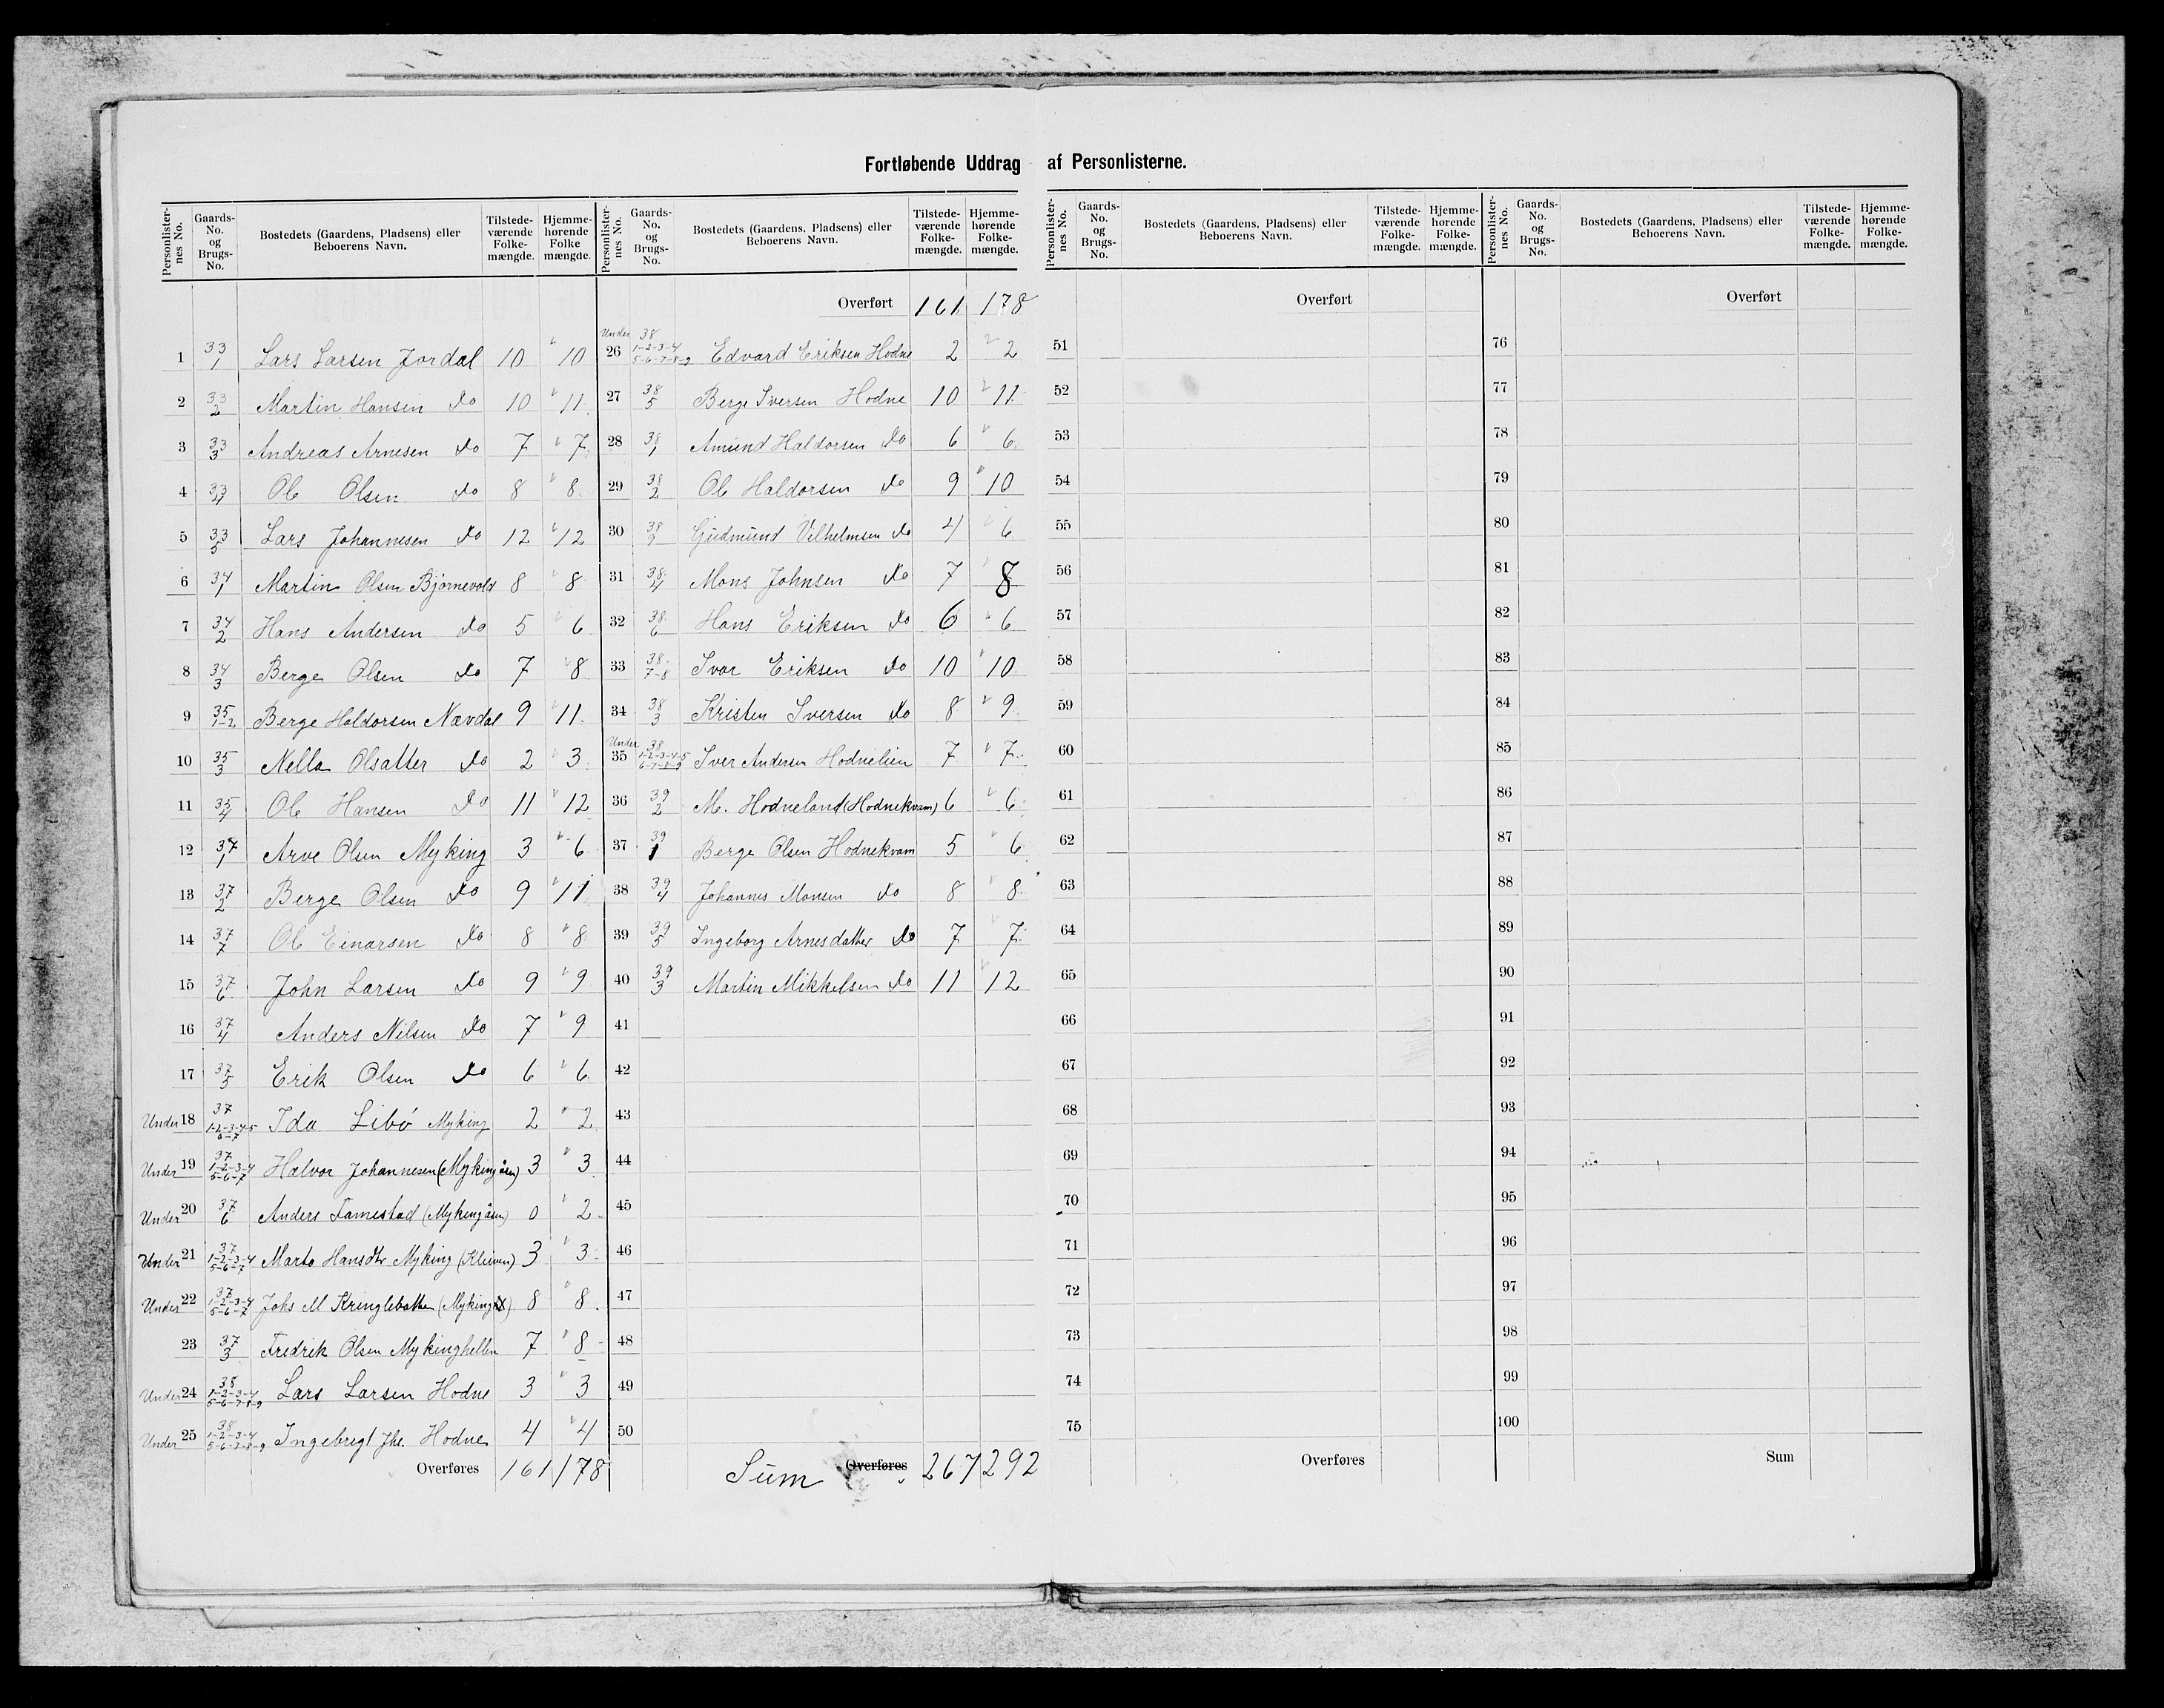 Fortløbende Uddrag af Personlisterne.
Personlister-nes No. Gaards-No. og Brugs-No. Bostedets (Gaardens, Pladsens) eller Beboerens Navn. Tilstede-værende Folke-mængde. Hjemme-hørende Folke mængde.
1 33/1 Lars Larsen Jordal 10 10
2 33/2 Martin Hansen do 10 11
3 33/3 Andreas Arnesen do 7 7
4 33/4 Ole Olsen do 8 8
5 33/5 Lars Johannesen do 12 12
6 34/1 Martin Olsen Bjørnevold 8 8
7 34/2 Hans Andersen do 5 6
8 34/3 Berge Olsen do 7 8
9 35/1-2 Berge Haldorsen Nævdal 9 11
10 35/3 Nella Olsatter do 2 3
11 35/4 Ole Hansen do 11 12
12 37/1 Arve Olsen Myking 3 6
13 37/2 Berge Olsen do 9 11
14 37/7 Ole Einarsen do 8 8
15 37/6 John Larsen do 9 9
16 37/4 Anders Nilsen do 7 9
17 37/5 Erik Olsen do 6 6
Under 18 37/1-2-3-4-5 6-7 Ida Libø Myking 2 2
Under 19 37/1-2-3-4 5-6-7 Halvor Johannesen (Mykingåsen) 3 3
Under 20 37/6 Anders Tamestad (Mykingåsen) 0 2
Under 21 37/1-2-3-4 5-6-7 Marta Hansdtr Myking (Kleiven) 3 3
Under 22 37/1-2-3-4 5-6-7 Johs M Kringlebotten 8 8
23 37/3 Fredrik Olsen Mykinghellen 7 8
Under 24 38/1-2-3-4 5-6-7-8-9 Lars Larsen Hodne 3 3
Under 25 38/1-2-3-4 5-6-7-8-9 Ingebregt Jhs. Hodne 4 4
Overføres 161 178
Personlister-nes No. Gaards-No. og Brugs-No. Bostedets (Gaardens, Pladsens) eller Beboerens Navn. Tilstede-værende Folke-mængde. Hjemme-hørende Folke-mængde.
Overført 161 178
Under 26 38/1-2-3-4 5-6-7-8-9 Edvard Eriksen Hodne 2 2
27 38/5 Berge Iversen Hodne 10 11
28 38/1 Amund Haldorsen do 6 6
29 38/2 Ole Haldorsen do 9 10
30 38/9 Gudmund Vilhelmsen do 4 6
31 38/4 Mons Johnsen do 7 8
32 38/6 Hans Eriksen do 6 6
33 38/7-8 Ivar Eriksen do 10 10
34 38/3 Kristen Iversen do 8 9
Under 35 38/1-2-3-4-5 6-7-8-9 Iver Andersen Hodnelien 7 7
36 39/2 M. Hodneland (Hodnekvam) 6 6
37 39/1 Berge Olsen Hodnekvam 5 6
38 39/4 Johannes Monsen do 8 8
39 39/5 Ingeborg Arnesdatter do 7 7
40 39/3 Martin Mikkelsen do 11 12
41
42
43
44
45
46
47
48
49
50
Sum Overføres 267 292
Personlister-nes No. Gaards-No. og Brugs-No. Bostedets (Gaardens, Pladsens) eller Beboerens Navn. Tilstede-værende Folke-mængde. Hjemme-hørende Folke-mængde.
Overført
51
52
53
54
55
56
57
58
59
60
61
62
63
64
65
66
67
68
69
70
71
72
73
74
75
Overføres
Personlister-nes No. Gaards-No. og Brugs-No. Bostedets (Gaardens, Pladsens) eller Beboerens Navn. Tilstede-værende Folke-mængde. Hjemme-hørende Folke-mængde.
Overført
76
77
78
79
80
81
82
83
84
85
86
87
88
89
90
91
92
93
94
95
96
97
98
99
100
Sum